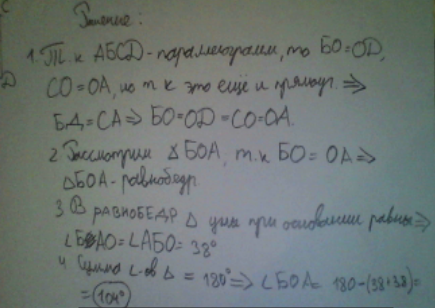 С
Решение:
1. Т.к АБСД - параллелограмм, то БО=ОD,
D
СО=ОА, но т к это ещё и прямоуг. ⇒
БД=СА⇒ БО=ОD=СО=ОА.
2 Рассмотрим ΔБОА, т.к БО=ОА⇒
ΔБОА-равнобедр
3 В РАВНОБЕДР Δ углы при основании равны⇒
∠БАО=∠АБО=38°
4 Сумма ∠-ов Δ = 180°⇒ ∠БОА= 180-(38+38)=
= 104°